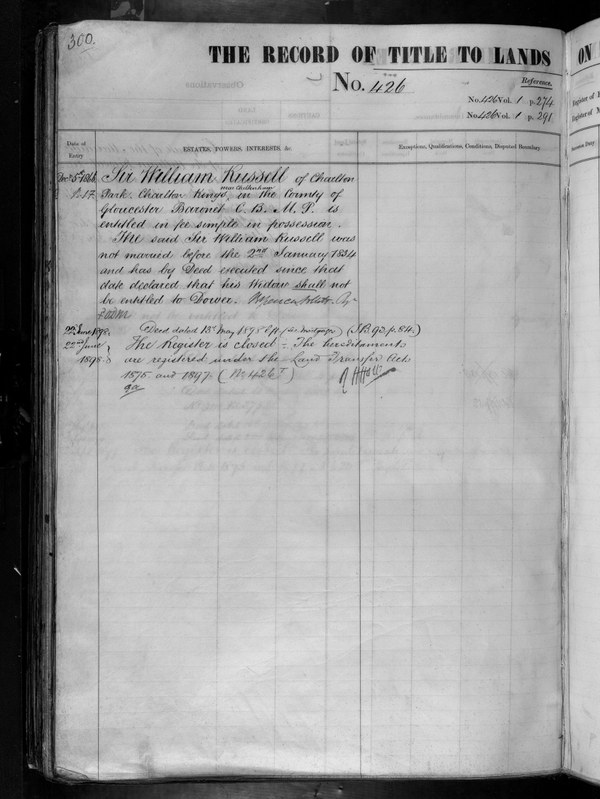 300.
THE RECORD OF TITLE TO LANDS
No. 426
Reference.
No. 426 Vol. 1 p. 274
No. 426 Vol. 1 p. 291
Date of Entry
ESTATES, POWERS, INTERESTS, &c.
Exceptions, Qualifications, Conditions, Disputed Boundary
Sir William Russell of Charlton
Park Charlton Kings near Cheltenham in the County of
Gloucester Baronet C. B. M. P. is
entitled in fee simple in possession.
The said Sir William Russell was
not married before the 2nd January 1834
and has by Deed executed since that
date declared that his Widow shall not
be entitled to Dower.
22 June 1898. Deed dated 13 May 1898
22nd June 1898. The Register is closed – The hereditaments
are registered under the Land Transfer Acts
1875 and 1897.
ON
Register of
Register of